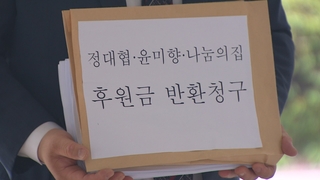 정대협·윤미향·나눔의집
후원금 반환청구